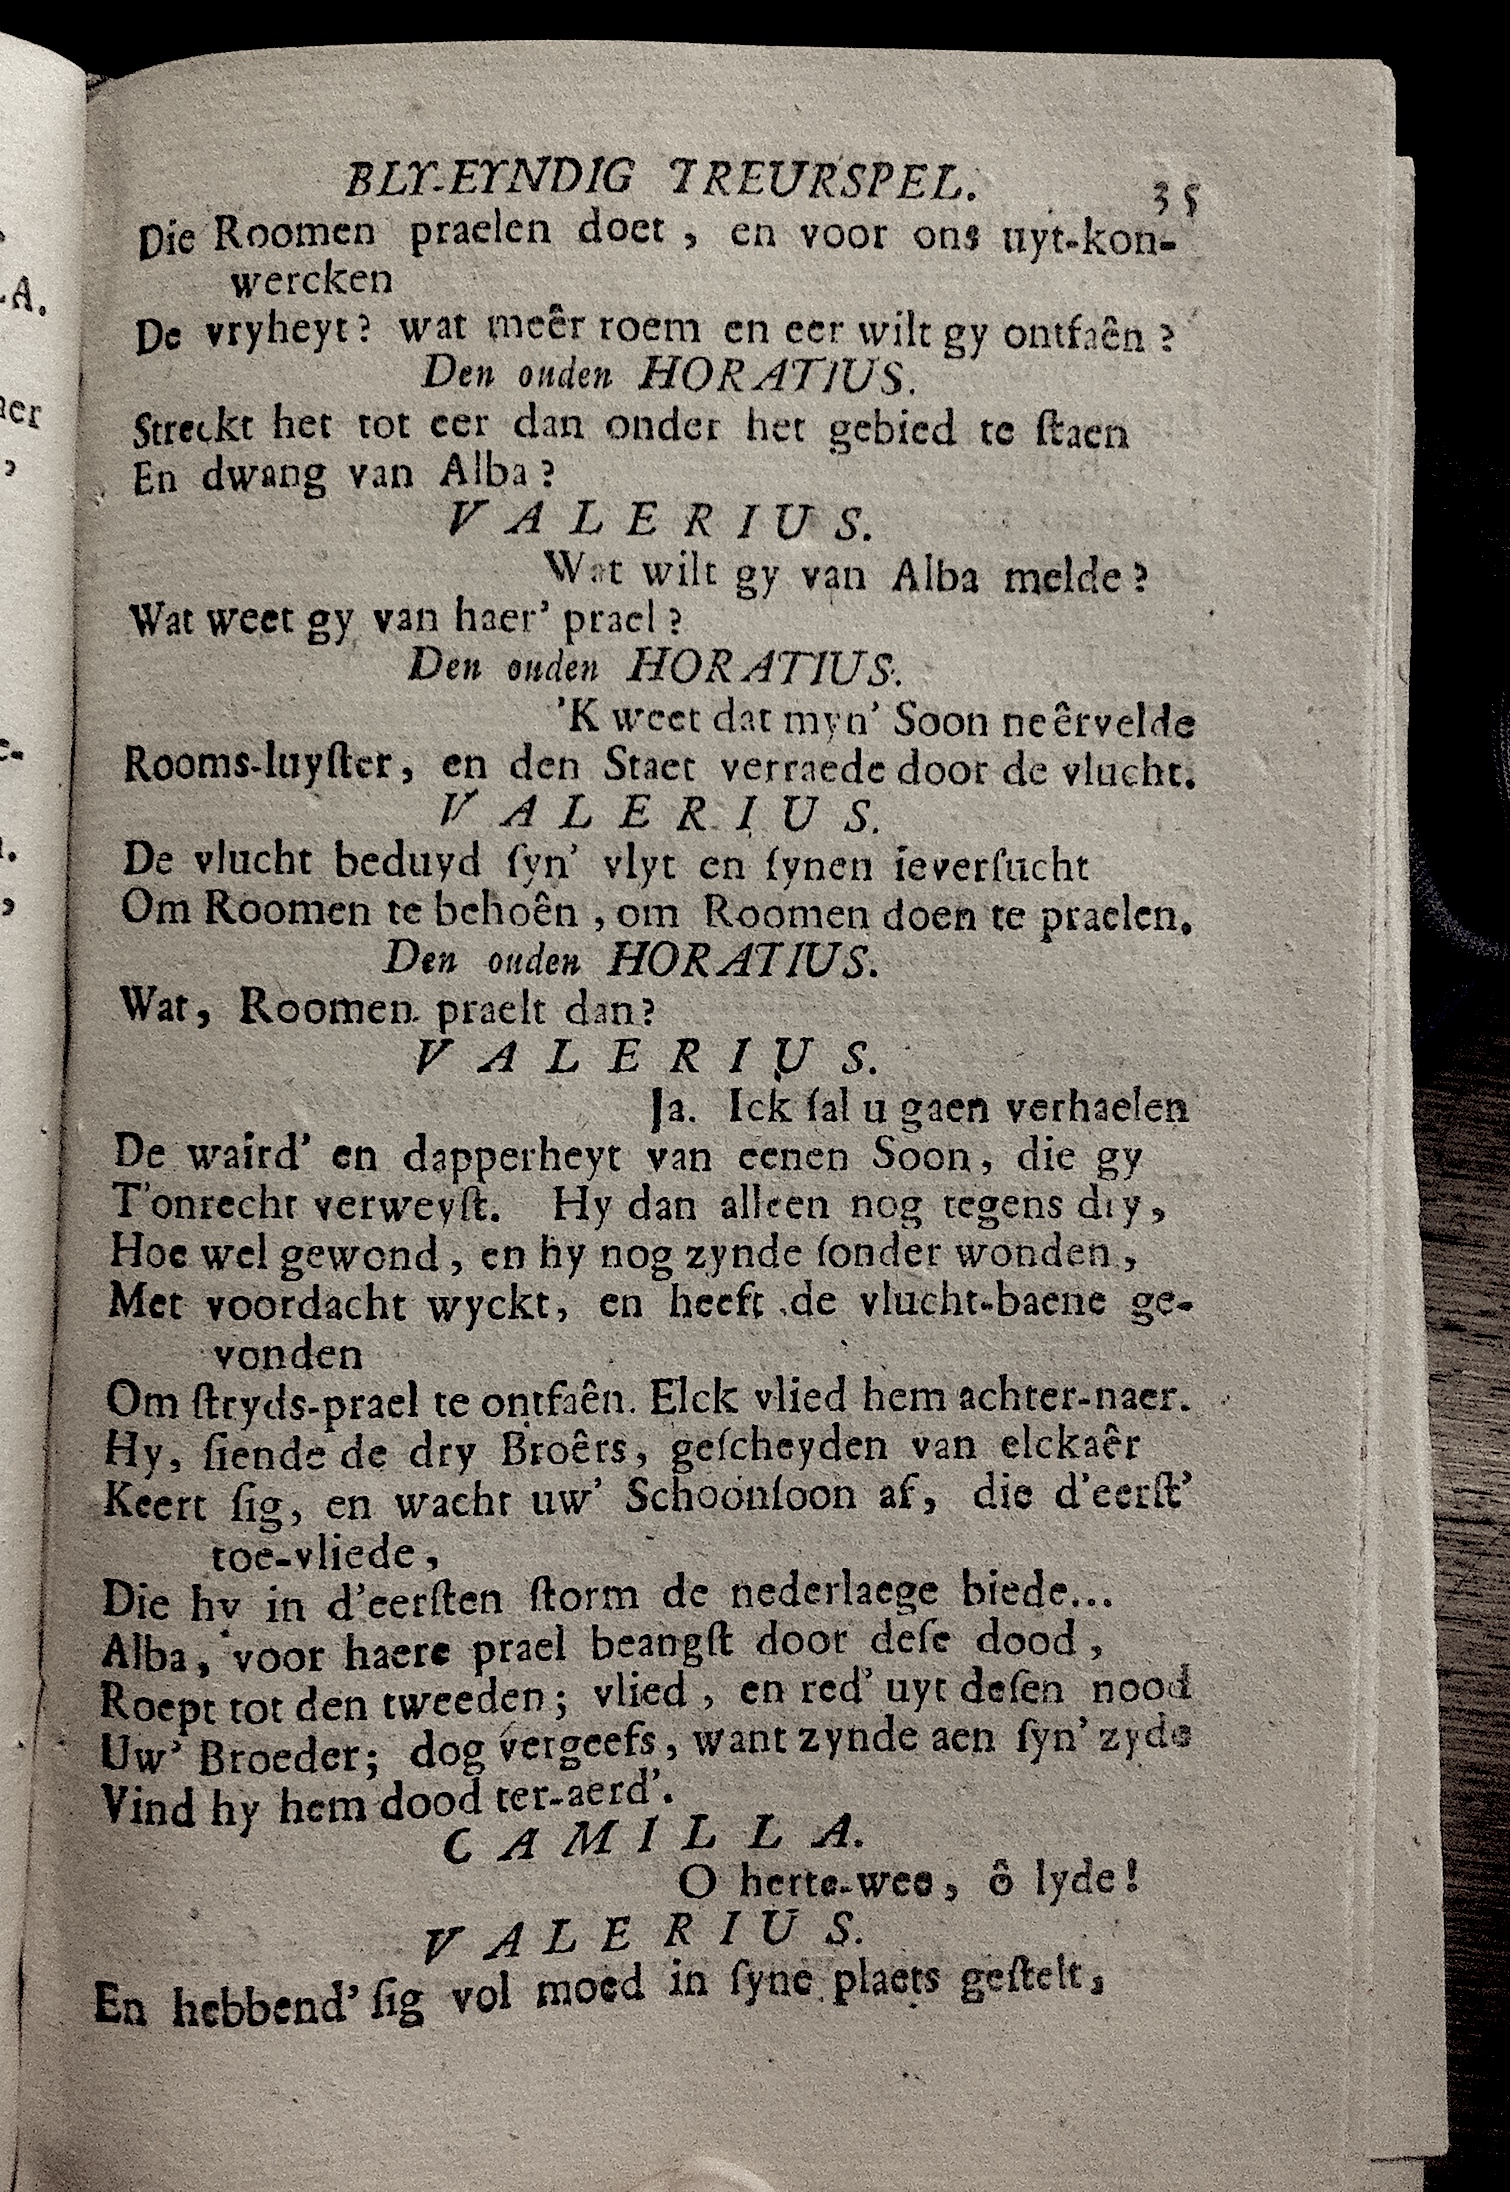 BLY-EYNDIG TREURSPEL. 35
Die Roomen praelen doet, en voor ons uyt-kon-
wercken
De vryheyt? wat meêr roem en eer wilt gy ontfaên?
Den ouden HORATIUS.
Streckt het tot eer dan onder het gebied te ſtaen
En dwang van Alba?
VALERIUS.
Wat wilt gy van Alba melde?
Wat weet gy van haer' prael?
Den ouden HORATIUS.
'K weet dat myn' Soon neêrvelde
Rooms-luyſter, en den Staet verraede door de vlucht.
VALERIUS.
De vlucht beduyd ſyn' vlyt en ſynen ieverſucht
Om Roomen te behoên, om Roomen doen te praelen.
Den ouden HORATIUS.
Wat, Roomen praelt dan?
VALERIUS.
Ja. Ick ſal u gaen verhaelen
De waird' en dapperheyt van eenen Soon, die gy
T'onrecht verweyſt. Hy dan alleen nog tegens dry,
Hoe wel gewond, en hy nog zynde ſonder wonden,
Met voordacht wyckt, en heeft de vlucht-baene ge-
vonden
Om ſtryds-prael te ontfaên. Elck vlied hem achter-naer.
Hy, ſiende de dry Broêrs, geſcheyden van elckaêr
Keert ſig, en wacht uw' Schoonſoon af, die d'eerſt'
toe-vliede,
Die hy in d'eerſten ſtorm de nederlaege biede...
Alba, voor haere prael beangſt door deſe dood,
Roept tot den tweeden; vlied, en red' uyt deſen nood
Uw' Broeder; dog vergeefs, want zynde aen ſyn' zyde
Vind hy hem dood ter-aerd'.
CAMILLA.
O herte-wee, ô lyde!
VALERIUS.
En hebbend' ſig vol moed in ſyne plaets geſtelt,